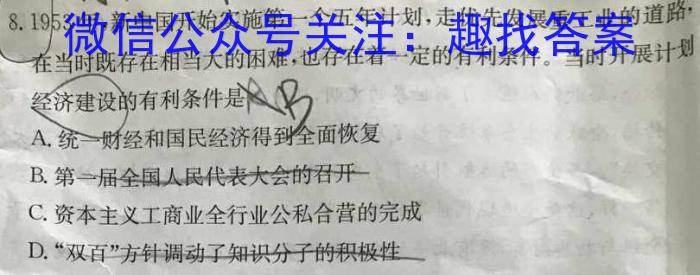 8.195 新中国开始实施第一个五年计划,走优先发展重工业的道路,
微信公众号关注：趣找答案
在当时既存在相当大的困难,也存在着一定的有利条件。当时开展计划
经济建设的有利条件是 AB
A. 统一财经和国民经济得到全面恢复
B. 第一届全国人民代表大会的召开
C. 资本主义工商业全行业公私合营的完成
D. “双百”方针调动了知识分子的积极性